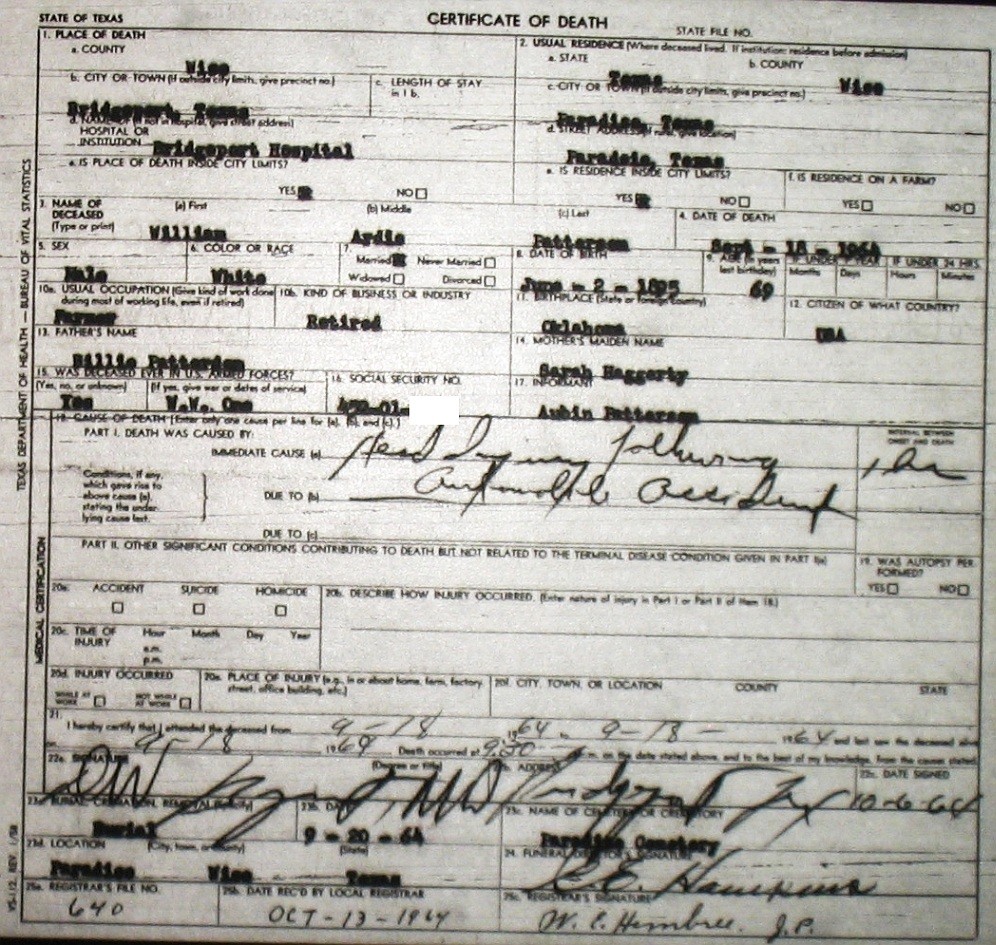 STATE OF TEXAS
CERTIFICATE OF DEATH
STATE FILE NO.
TEXAS DEPARTMENT OF HEALTH — BUREAU OF VITAL STATISTICS
1. PLACE OF DEATH
a. COUNTY
Wise
2. USUAL RESIDENCE (Where deceased lived. If institution: residence before admission)
a. STATE
Texas
b. COUNTY
Wise
b. CITY OR TOWN (If outside city limits, give precinct no.)
Bridgeport, Texas
c. LENGTH OF STAY
in 1 b.
c. CITY OR TOWN (If outside city limits, give precinct no.)
Paradise, Texas
d. NAME OF (If not in hospital, give street address)
HOSPITAL OR
INSTITUTION Bridgeport Hospital
d. STREET ADDRESS (If rural, give location)
Paradsie, Texas
e. IS PLACE OF DEATH INSIDE CITY LIMITS?
YES NO
e. IS RESIDENCE INSIDE CITY LIMITS?
YES NO
f. IS RESIDENCE ON A FARM?
YES NO
3. NAME OF
DECEASED
(Type or print)
(a) First
William
(b) Middle
Ardie
(c) Last
Patterson
4. DATE OF DEATH
Sept - 18 - 1964
5. SEX
Male
6. COLOR OR RACE
White
7.
Married Never Married
Widowed Divorced
8. DATE OF BIRTH
June - 2 - 1895
9. AGE (In years
last birthday)
69
IF UNDER 1 YEAR
Months Days
IF UNDER 24 HRS.
Hours Minutes
10a. USUAL OCCUPATION (Give kind of work done
during most of working life, even if retired)
Farmer
10b. KIND OF BUSINESS OR INDUSTRY
Retired
11. BIRTHPLACE (State or foreign country)
Oklahoma
12. CITIZEN OF WHAT COUNTRY?
USA
13. FATHER'S NAME
Billie Patterson
14. MOTHER'S MAIDEN NAME
Sarah Haggerty
15. WAS DECEASED EVER IN U.S. ARMED FORCES?
(Yes, no, or unknown)
Yes
(If yes, give war or dates of service)
W.W. One
16. SOCIAL SECURITY NO.
17. INFORMANT
Aubin Patterson
MEDICAL CERTIFICATION
18. CAUSE OF DEATH [Enter only one cause per line for (a), (b), and (c).]
PART I. DEATH WAS CAUSED BY:
IMMEDIATE CAUSE (a) Head Injury following
INTERVAL BETWEEN
ONSET AND DEATH
Conditions, if any,
which gave rise to
above cause (a),
stating the under-
lying cause last.
DUE TO (b) Automobile Accident
DUE TO (c)
PART II. OTHER SIGNIFICANT CONDITIONS CONTRIBUTING TO DEATH BUT NOT RELATED TO THE TERMINAL DISEASE CONDITION GIVEN IN PART I(a)
19. WAS AUTOPSY PER-
FORMED?
YES NO
20a. ACCIDENT SUICIDE HOMICIDE
20b. DESCRIBE HOW INJURY OCCURRED. (Enter nature of injury in Part I or Part II of item 18.)
20c. TIME OF
INJURY
Hour Month Day Year
a.m.
p.m.
20d. INJURY OCCURRED
WHILE AT
WORK
NOT WHILE
AT WORK
20e. PLACE OF INJURY (e.g., in or about home, farm, factory,
street, office building, etc.)
20f. CITY, TOWN, OR LOCATION COUNTY STATE
21.
I hereby certify that I attended the deceased from 9-18 1964 to 9-18- 1964 and last saw the deceased alive
on 9-18 1964 Death occurred at 9:30 m. on the date stated above, and to the best of my knowledge, from the causes stated.
22a. SIGNATURE
(Degree or title)
22b. ADDRESS
Bridgeport Tex
22c. DATE SIGNED
10-6-64
23a. BURIAL, CREMATION, REMOVAL (Specify)
Burial
23b. DATE
9 - 20 - 64
23c. NAME OF CEMETERY OR CREMATORY
Paradise Cemetery
23d. LOCATION (City, town, or county) (State)
Paradise Wise Texas
24. FUNERAL DIRECTOR'S SIGNATURE
C.E. Hawkins
25a. REGISTRAR'S FILE NO.
640
25b. DATE REC'D BY LOCAL REGISTRAR
OCT-13-1964
25c. REGISTRAR'S SIGNATURE
W. C. Hembree. J.P.
VS-112, REV. 1/58